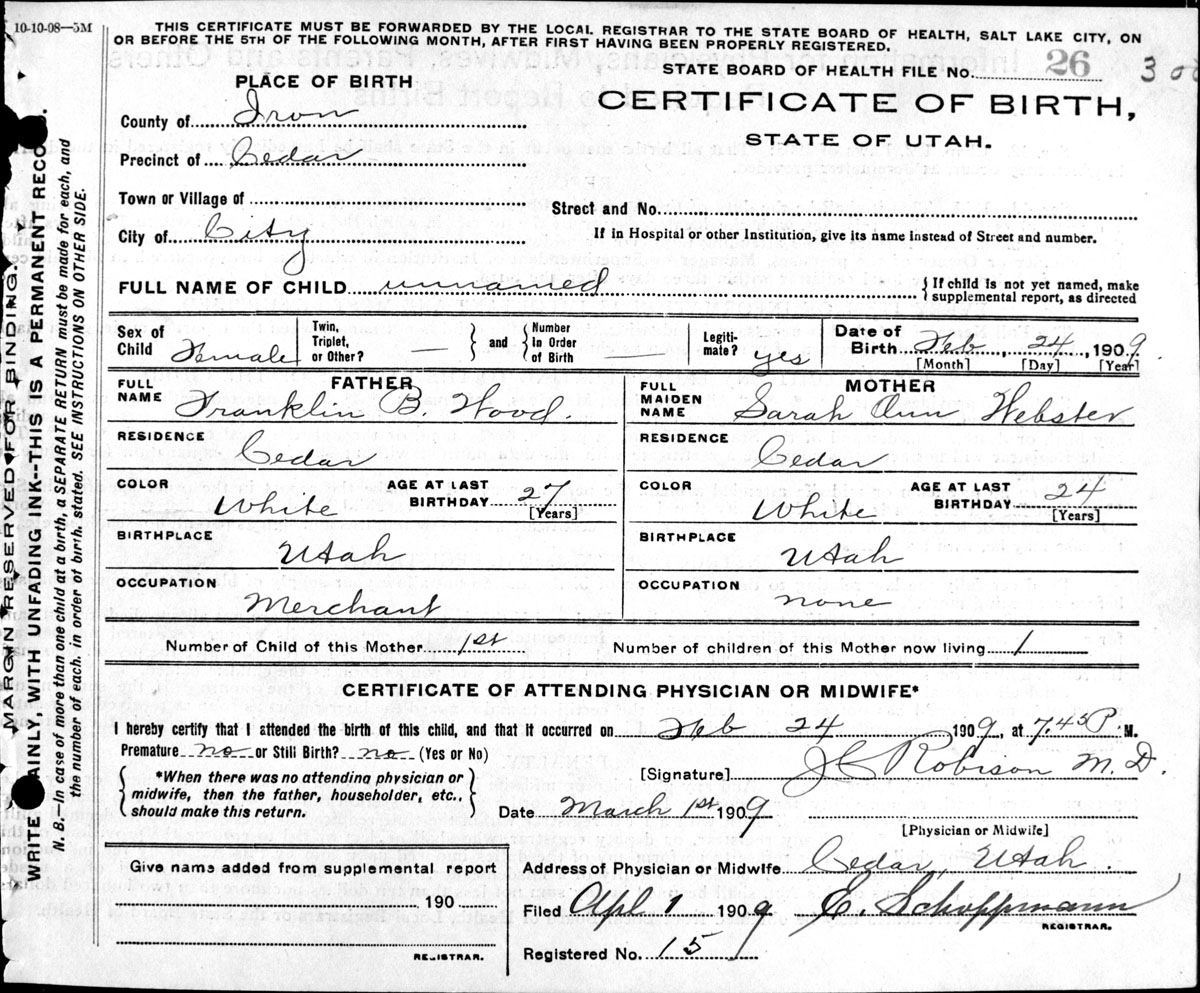 10-10-08—5M
THIS CERTIFICATE MUST BE FORWARDED BY THE LOCAL REGISTRAR TO THE STATE BOARD OF HEALTH, SALT LAKE CITY, ON
OR BEFORE THE 5TH OF THE FOLLOWING MONTH, AFTER FIRST HAVING BEEN PROPERLY REGISTERED.
PLACE OF BIRTH
STATE BOARD OF HEALTH FILE No. 26
CERTIFICATE OF BIRTH,
STATE OF UTAH.
County of Iron
Precinct of Cedar
Town or Village of
Street and No.
City of City
If in Hospital or other Institution, give its name instead of Street and number.
FULL NAME OF CHILD unnamed
{ If child is not yet named, make
supplemental report, as directed
Sex of Child Female
Twin, Triplet, or Other? —
} and { Number In Order of Birth —
Legitimate? yes
Date of Birth Feb, 24, 1909.
[Month] [Day] [Year]
FATHER
FULL NAME Franklin B. Wood.
RESIDENCE Cedar
COLOR White
AGE AT LAST BIRTHDAY 27
[Years]
BIRTHPLACE Utah
OCCUPATION Merchant
MOTHER
FULL MAIDEN NAME Sarah Ann Webster
RESIDENCE Cedar
COLOR White
AGE AT LAST BIRTHDAY 24
[Years]
BIRTHPLACE Utah
OCCUPATION none
Number of Child of this Mother 1st
Number of children of this Mother now living 1
CERTIFICATE OF ATTENDING PHYSICIAN OR MIDWIFE*
I hereby certify that I attended the birth of this child, and that it occurred on Feb 24 1909, at 7.45 P. M.
Premature no or Still Birth? no (Yes or No)
{ *When there was no attending physician or
midwife, then the father, householder, etc.,
should make this return. }
[Signature] J C Robison M. D.
Date March 1st 1909
[Physician or Midwife]
Give name added from supplemental report
190
REGISTRAR.
Address of Physician or Midwife Cedar, Utah.
Filed Apl 1 1909 E. Schoppmann
REGISTRAR.
Registered No. 15
MARGIN RESERVED FOR BINDING.
AINLY, WITH UNFADING INK--THIS IS A PERMANENT
WRITE
N. B.—In case of more than one child at a birth, a SEPARATE RETURN must be made for each, and
the number of each, in order of birth, stated. SEE INSTRUCTIONS ON OTHER SIDE.